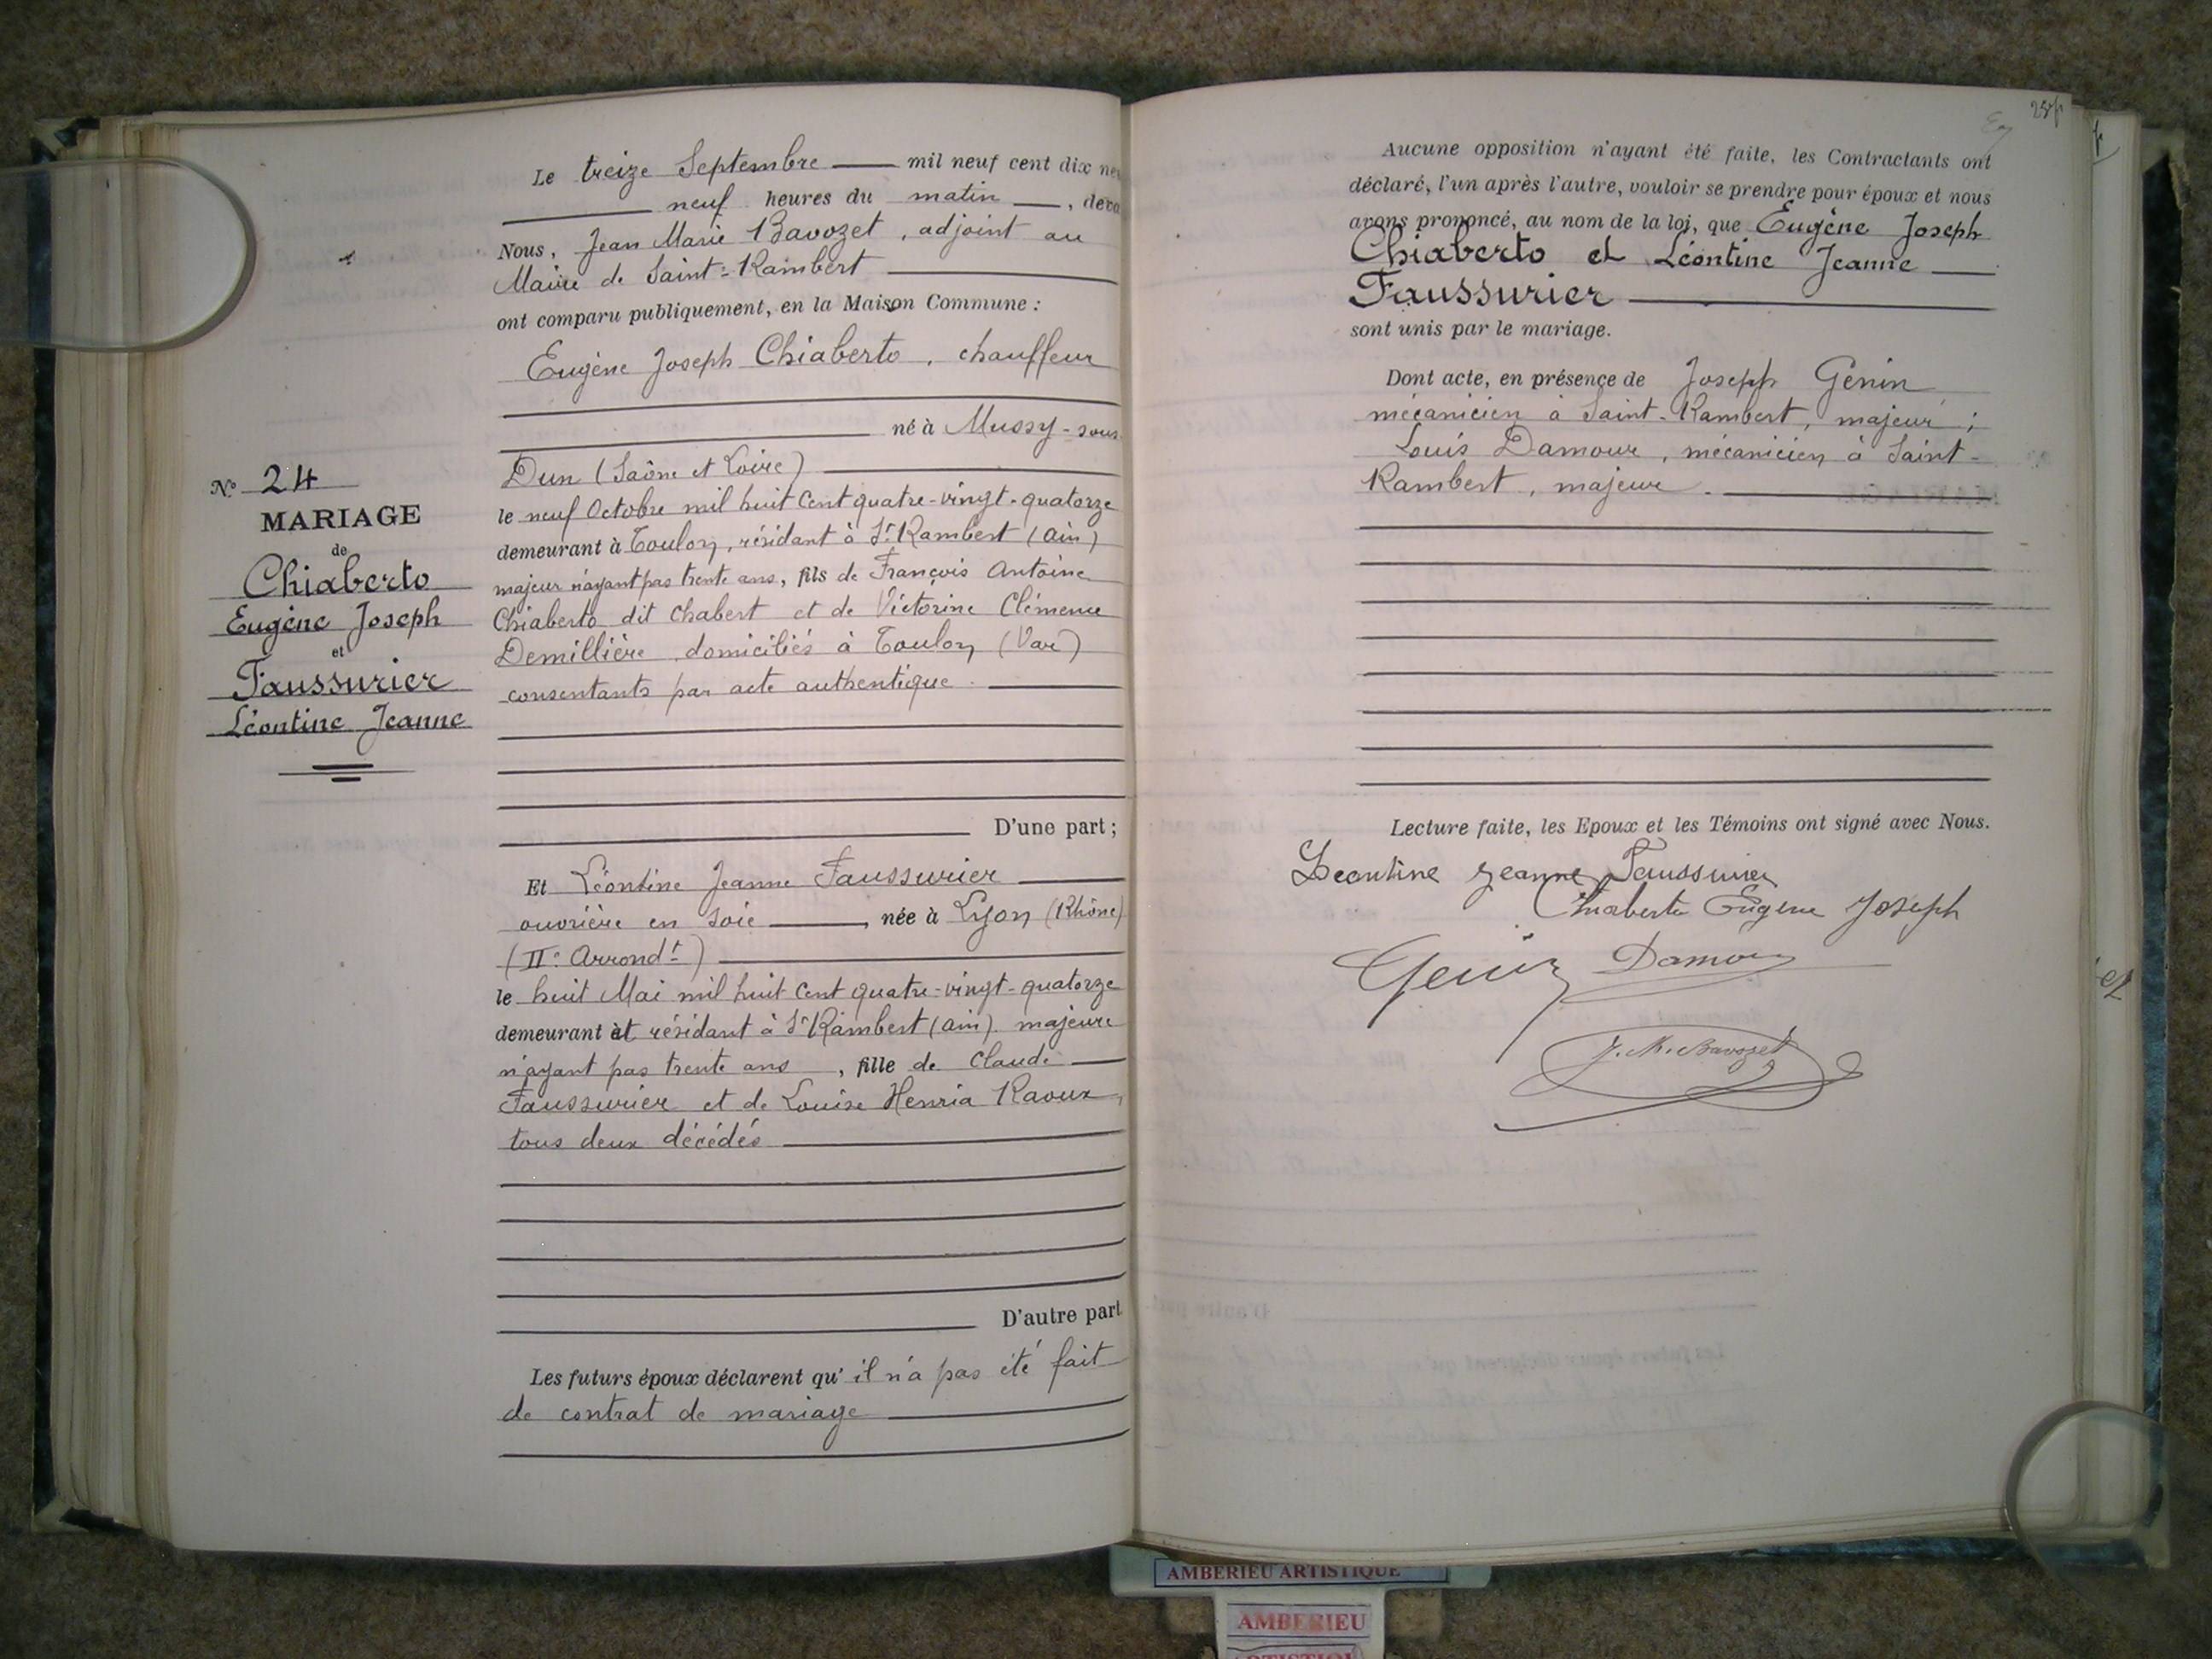 N° 24
MARIAGE
de
Chiaberto
Eugène Joseph
et
Faussurier
Léontine Jeanne
Le treize Septembre mil neuf cent dix
neuf heures du matin,
Nous, Jean Marie Bavozet, adjoint au
Maire de Saint-Rambert
ont comparu publiquement, en la Maison Commune :
Eugène Joseph Chiaberto, chauffeur
né à Mussy-sous
Dun (Saône et Loire)
le neuf Octobre mil huit cent quatre-vingt-quatorze
demeurant à Toulon, résidant à St Rambert (Ain)
majeur n'ayant pas trente ans, fils de François Antoine
Chiaberto dit Chabert et de Victorine Clémence
Demillière, domiciliés à Toulon (Var)
consentants par acte authentique.
D'une part ;
Et Léontine Jeanne Faussurier
ouvrière en soie, née à Lyon (Rhône)
(IIe Arrondt)
le huit Mai mil huit cent quatre-vingt-quatorze
demeurant et résidant à St Rambert (Ain) majeure
n'ayant pas trente ans, fille de Claude
Faussurier et de Louise Henria Raoux,
tous deux décédés
D'autre part
Les futurs époux déclarent qu'il n'a pas été fait
de contrat de mariage
Aucune opposition n'ayant été faite, les Contractants ont
déclaré, l'un après l'autre, vouloir se prendre pour époux et nous
avons prononcé, au nom de la loi, que Eugène Joseph
Chiaberto et Léontine Jeanne
Faussurier
sont unis par le mariage.
Dont acte, en présence de Joseph Génin
mécanicien à Saint-Rambert, majeur ;
Louis Damour, mécanicien à Saint-
Rambert, majeur.
Lecture faite, les Epoux et les Témoins ont signé avec Nous.
Leontine Jeanne Faussurier
Chiaberto Eugène Joseph
Genin Damour
J. M. Bavozet
AMBERIEU ARTISTIQUE
AMBERIEU